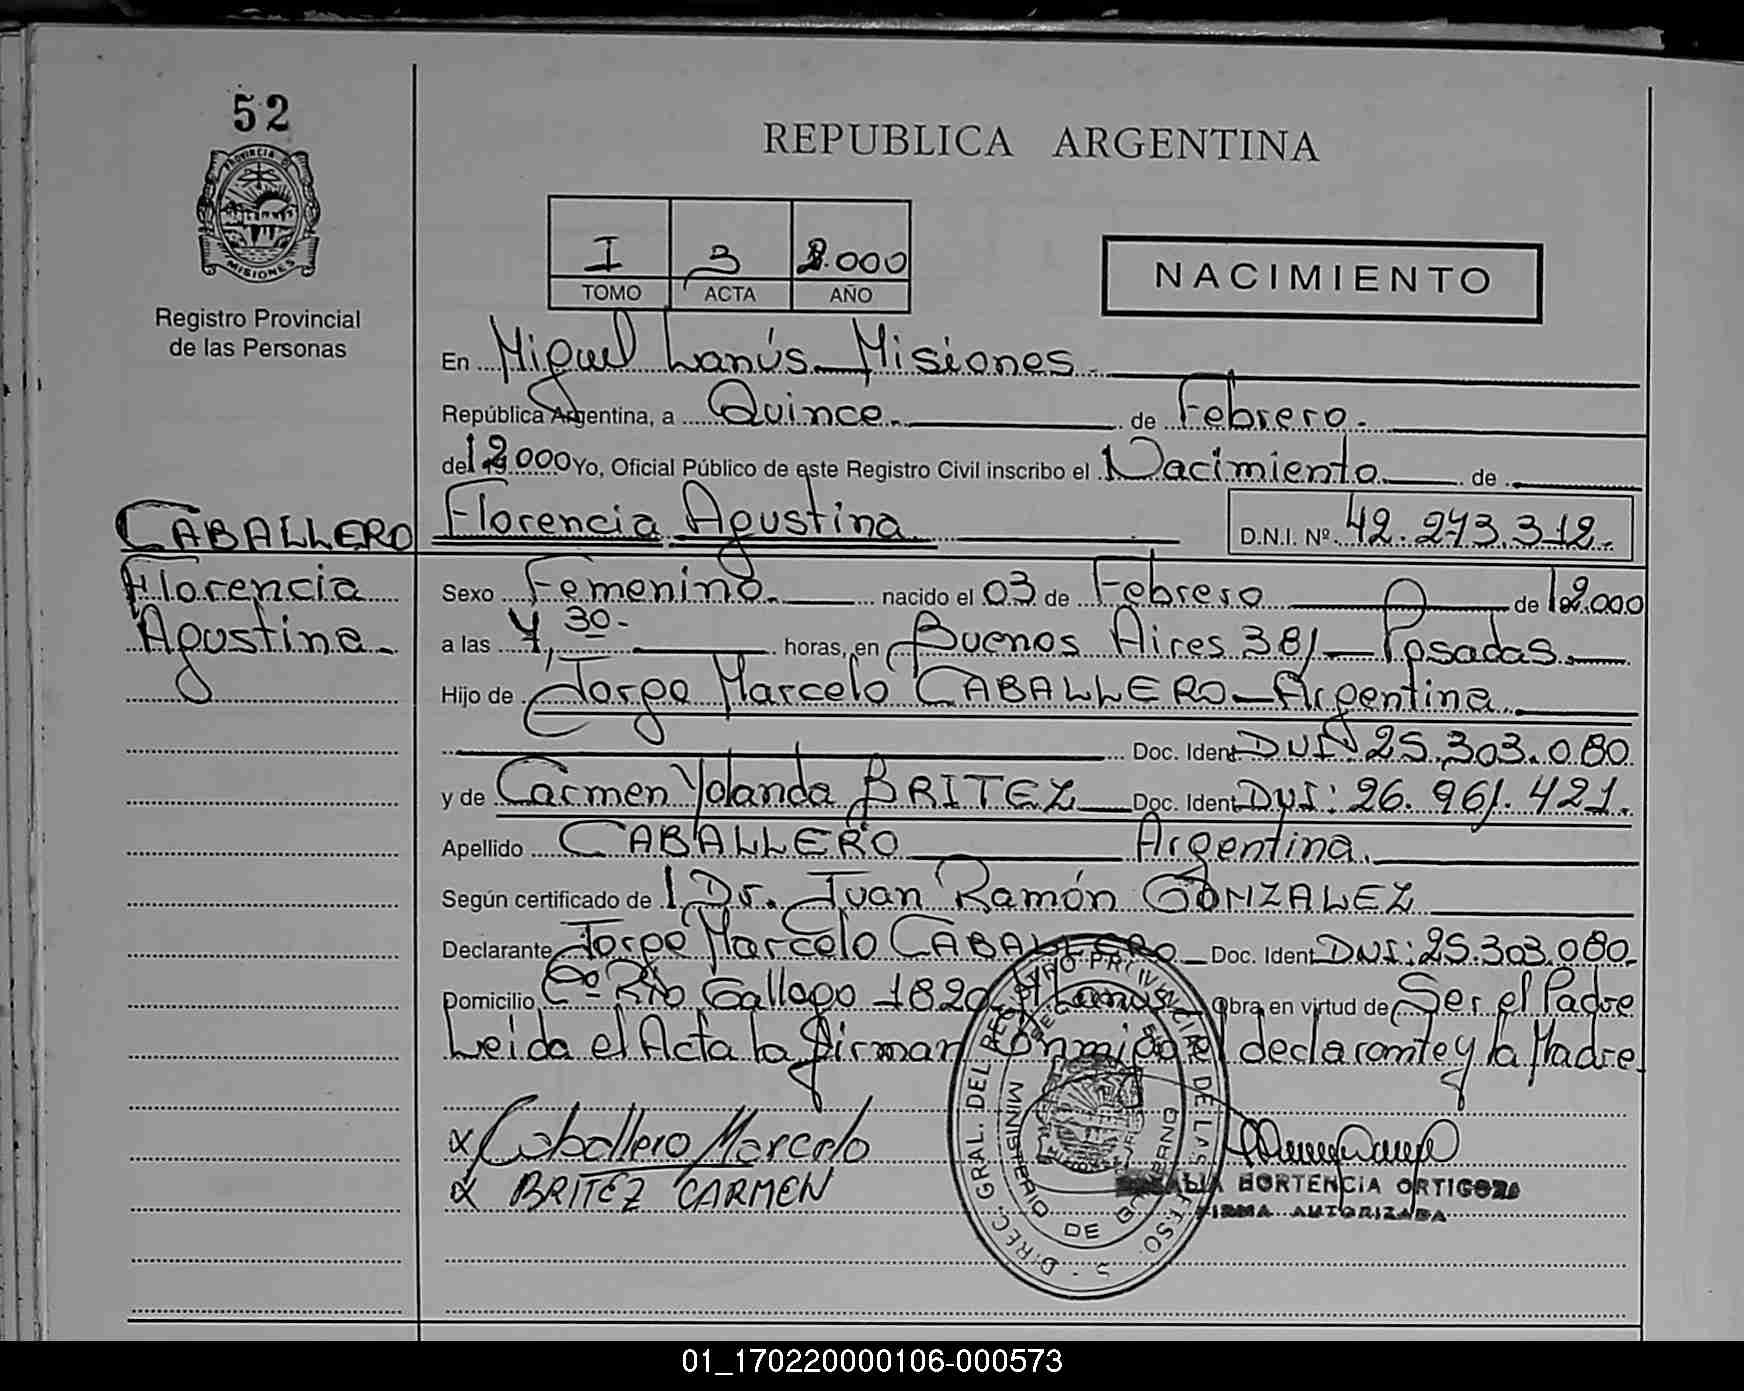 52
PROVINCIA D
MISIONES
Registro Provincial
de las Personas
REPUBLICA ARGENTINA
I 3 2.000
TOMO ACTA AÑO
NACIMIENTO
En Miguel Lanús - Misiones
República Argentina, a Quince de Febrero.
del 2000 Yo, Oficial Público de este Registro Civil inscribo el Nacimiento de
CABALLERO Florencia Agustina D.N.I. Nº 42.273.312.
Florencia
Agustina
Sexo Femenino nacido el 03 de Febrero de 2.000
a las 4,30- horas, en Buenos Aires 381 - Posadas
Hijo de Jorge Marcelo CABALLERO - Argentina
Doc. Ident. DNI 25.303.080
y de Carmen Yolanda BRITEZ Doc. Ident. DNI: 26.961.421.
Apellido CABALLERO Argentina.
Según certificado de Dr. Juan Ramón GONZALEZ
Declarante Jorge Marcelo CABALLERO Doc. Ident. DNI: 25.303.080.
Domicilio Cº Río Gallego 1820 M. Lanus Obra en virtud de Ser el Padre
Leida el Acta la firman Conmigo el declarante y la Madre
x Caballero Marcelo
x BRITEZ CARMEN
DIREC. GRAL. DEL REGISTRO PROVINCIAL DE LAS PERSO
MINISTERIO DE GOBIERNO
HORTENCIA ORTIGOZA
FIRMA AUTORIZADA
01_170220000106-000573